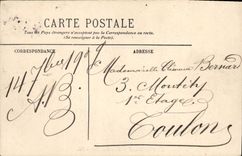 CARTE POSTALE
Tous les Pays étrangers n'acceptent pas la Correspondance au recto.
(Se renseigner à la Poste).
CORRESPONDANCE
ADRESSE
14 7bre 190
A.B
Mademoiselle Bernard
3.
1er Etage
Toulon